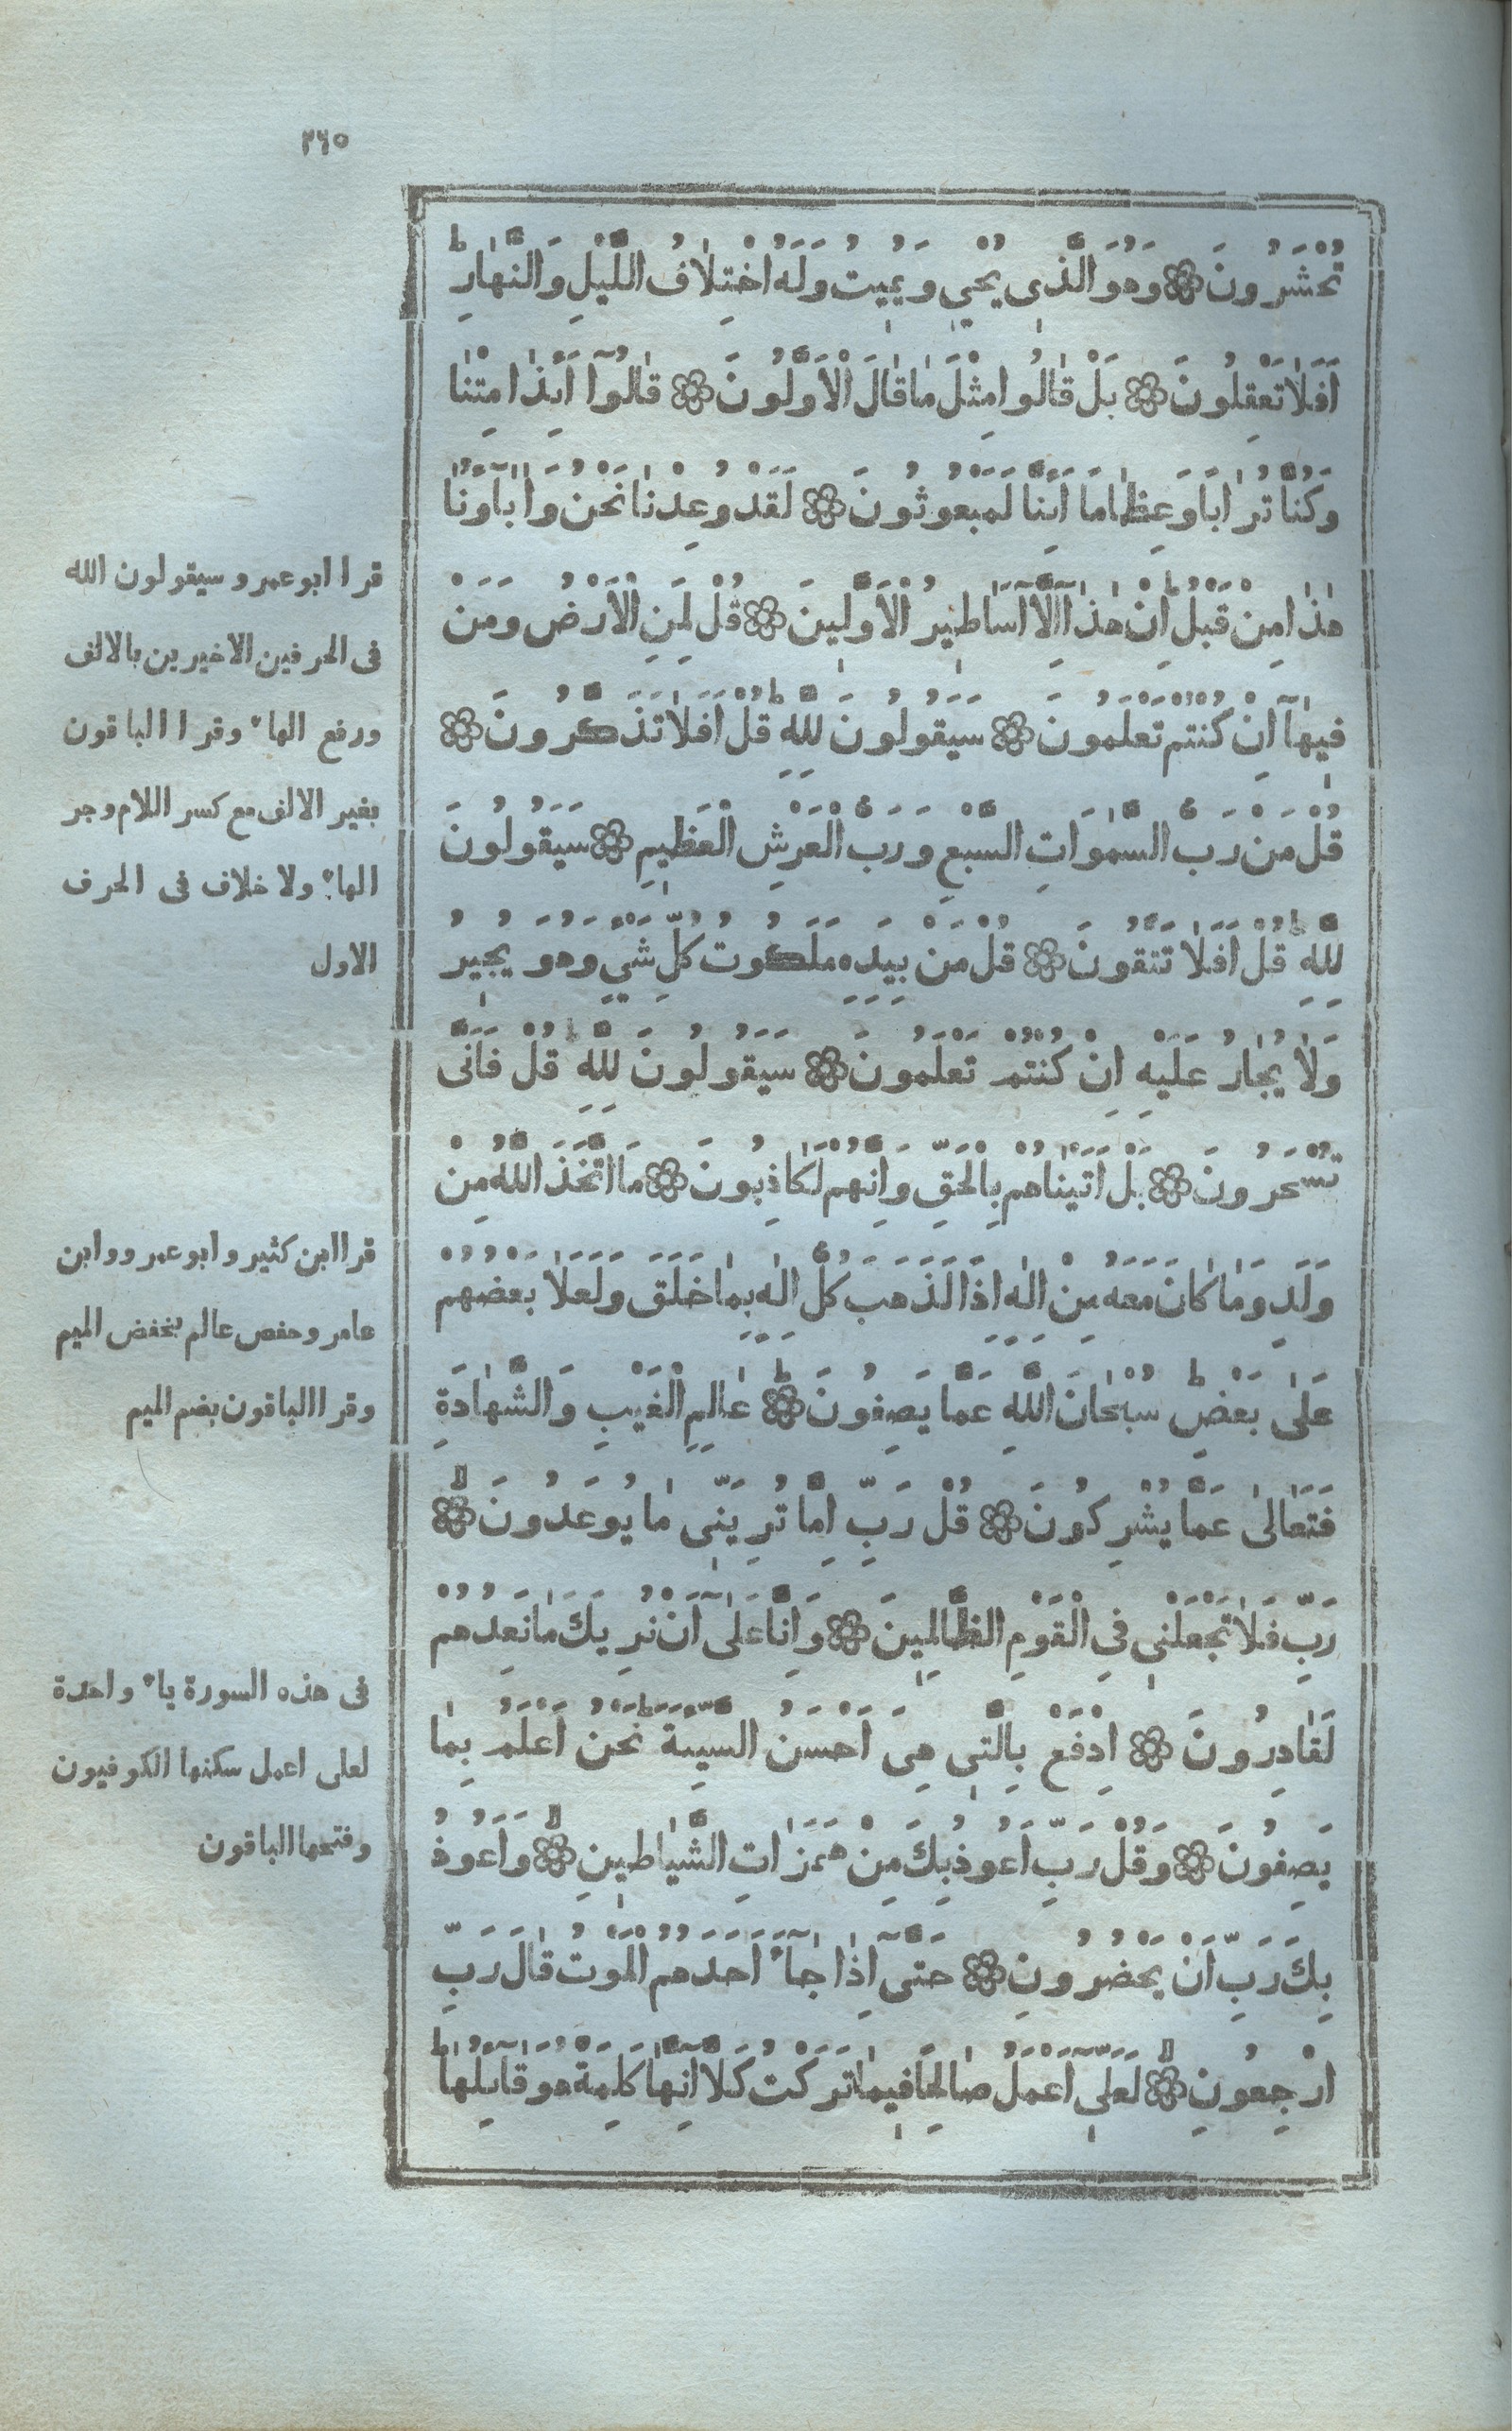 ٢٦٥
تُحْشَرُونَ ۞ وَهُوَ الَّذٖى يُحْيٖى وَيُمٖيتُ وَلَهُ اخْتِلَافُ اللَّيْلِ وَالنَّهَارِ ط
اَفَلَا تَعْقِلُونَ ۞ بَلْ قَالُوا مِثْلَ مَا قَالَ الْاَوَّلُونَ ۞ قَالُوٓا ءَاِذَا مِتْنَا
وَكُنَّا تُرَابًا وَعِظَامًا ءَاِنَّا لَمَبْعُوثُونَ ۞ لَقَدْ وُعِدْنَا نَحْنُ وَاٰبَآؤُنَا
هٰذَا مِنْ قَبْلُ اِنْ هٰذَآ اِلَّآ اَسَاطٖيرُ الْاَوَّلٖينَ ۞ قُلْ لِمَنِ الْاَرْضُ وَمَنْ
فٖيهَآ اِنْ كُنْتُمْ تَعْلَمُونَ ۞ سَيَقُولُونَ لِلّٰهِ ط قُلْ اَفَلَا تَذَكَّرُونَ ۞
قُلْ مَنْ رَبُّ السَّمٰوَاتِ السَّبْعِ وَرَبُّ الْعَرْشِ الْعَظٖيمِ ۞ سَيَقُولُونَ
لِلّٰهِ ط قُلْ اَفَلَا تَتَّقُونَ ۞ قُلْ مَنْ بِيَدِهٖ مَلَكُوتُ كُلِّ شَىْءٍ وَهُوَ يُجٖيرُ
وَلَا يُجَارُ عَلَيْهِ اِنْ كُنْتُمْ تَعْلَمُونَ ۞ سَيَقُولُونَ لِلّٰهِ ط قُلْ فَاَنّٰى
تُسْحَرُونَ ۞ بَلْ اَتَيْنَاهُمْ بِالْحَقِّ وَاِنَّهُمْ لَكَاذِبُونَ ۞ مَا اتَّخَذَ اللّٰهُ مِنْ
وَلَدٍ وَمَا كَانَ مَعَهُ مِنْ اِلٰهٍ اِذًا لَذَهَبَ كُلُّ اِلٰهٍ بِمَا خَلَقَ وَلَعَلَا بَعْضُهُمْ
عَلٰى بَعْضٍ ط سُبْحَانَ اللّٰهِ عَمَّا يَصِفُونَ ۞ ط عَالِمِ الْغَيْبِ وَالشَّهَادَةِ
فَتَعَالٰى عَمَّا يُشْرِكُونَ ۞ قُلْ رَبِّ اِمَّا تُرِيَنّٖى مَا يُوعَدُونَ ۞ لا
رَبِّ فَلَا تَجْعَلْنٖى فِى الْقَوْمِ الظَّالِمٖينَ ۞ وَاِنَّا عَلٰٓى اَنْ نُرِيَكَ مَا نَعِدُهُمْ
لَقَادِرُونَ ۞ اِدْفَعْ بِالَّتٖى هِىَ اَحْسَنُ السَّيِّئَةَ ط نَحْنُ اَعْلَمُ بِمَا
يَصِفُونَ ۞ وَقُلْ رَبِّ اَعُوذُ بِكَ مِنْ هَمَزَاتِ الشَّيَاطٖينِ ۞ لا وَاَعُوذُ
بِكَ رَبِّ اَنْ يَحْضُرُونِ ۞ حَتّٰٓى اِذَا جَآءَ اَحَدَهُمُ الْمَوْتُ قَالَ رَبِّ
ارْجِعُونِ ۞ لا لَعَلّٖٓى اَعْمَلُ صَالِحًا فٖيمَا تَرَكْتُ كَلَّا ط اِنَّهَا كَلِمَةٌ هُوَ قَآئِلُهَا ط
قرا ابو عمرو سيقولون الله
فى الحرفين الاخيرين بالالف
ورفع الهاء وقرا الباقون
بغير الالف مع كسر اللام وجر
الهاء ولا خلاف فى الحرف
الاول
قرا ابن كثير وابو عمرو وابن
عامر وحفص عالم بخفض الميم
وقرا الباقون بضم الميم
فى هذه السورة ياء واحدة
لعلى اعمل سكنها الكوفيون
وفتحها الباقون